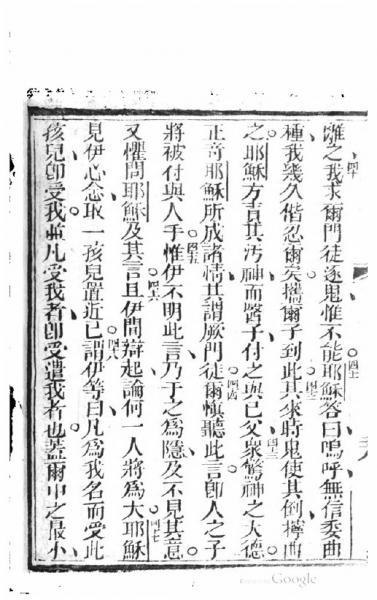 離之我求爾門徒逐鬼惟不能耶穌答曰嗚呼無信委曲
種我幾久偕忍爾矣攜爾子到此其來時鬼使其倒擰曲
之耶穌方責其汚神而醫子付之與己父衆驚神之大德
正奇耶穌所成諸情其謂厥門徒爾慎聽此言卽人之子
將被付與人手惟伊不明此言乃于之爲隱及不見其意
又懼問耶穌及其言且伊間辯起論何一人將爲大耶穌
見伊心念取一孩兒置近己謂伊等曰凡爲我名而受此
孩兒卽受我並凡受我者卽受遣我者也蓋爾中之最小
四十
四一
四二
四三
四四
四五
四六
四七
四八
Google